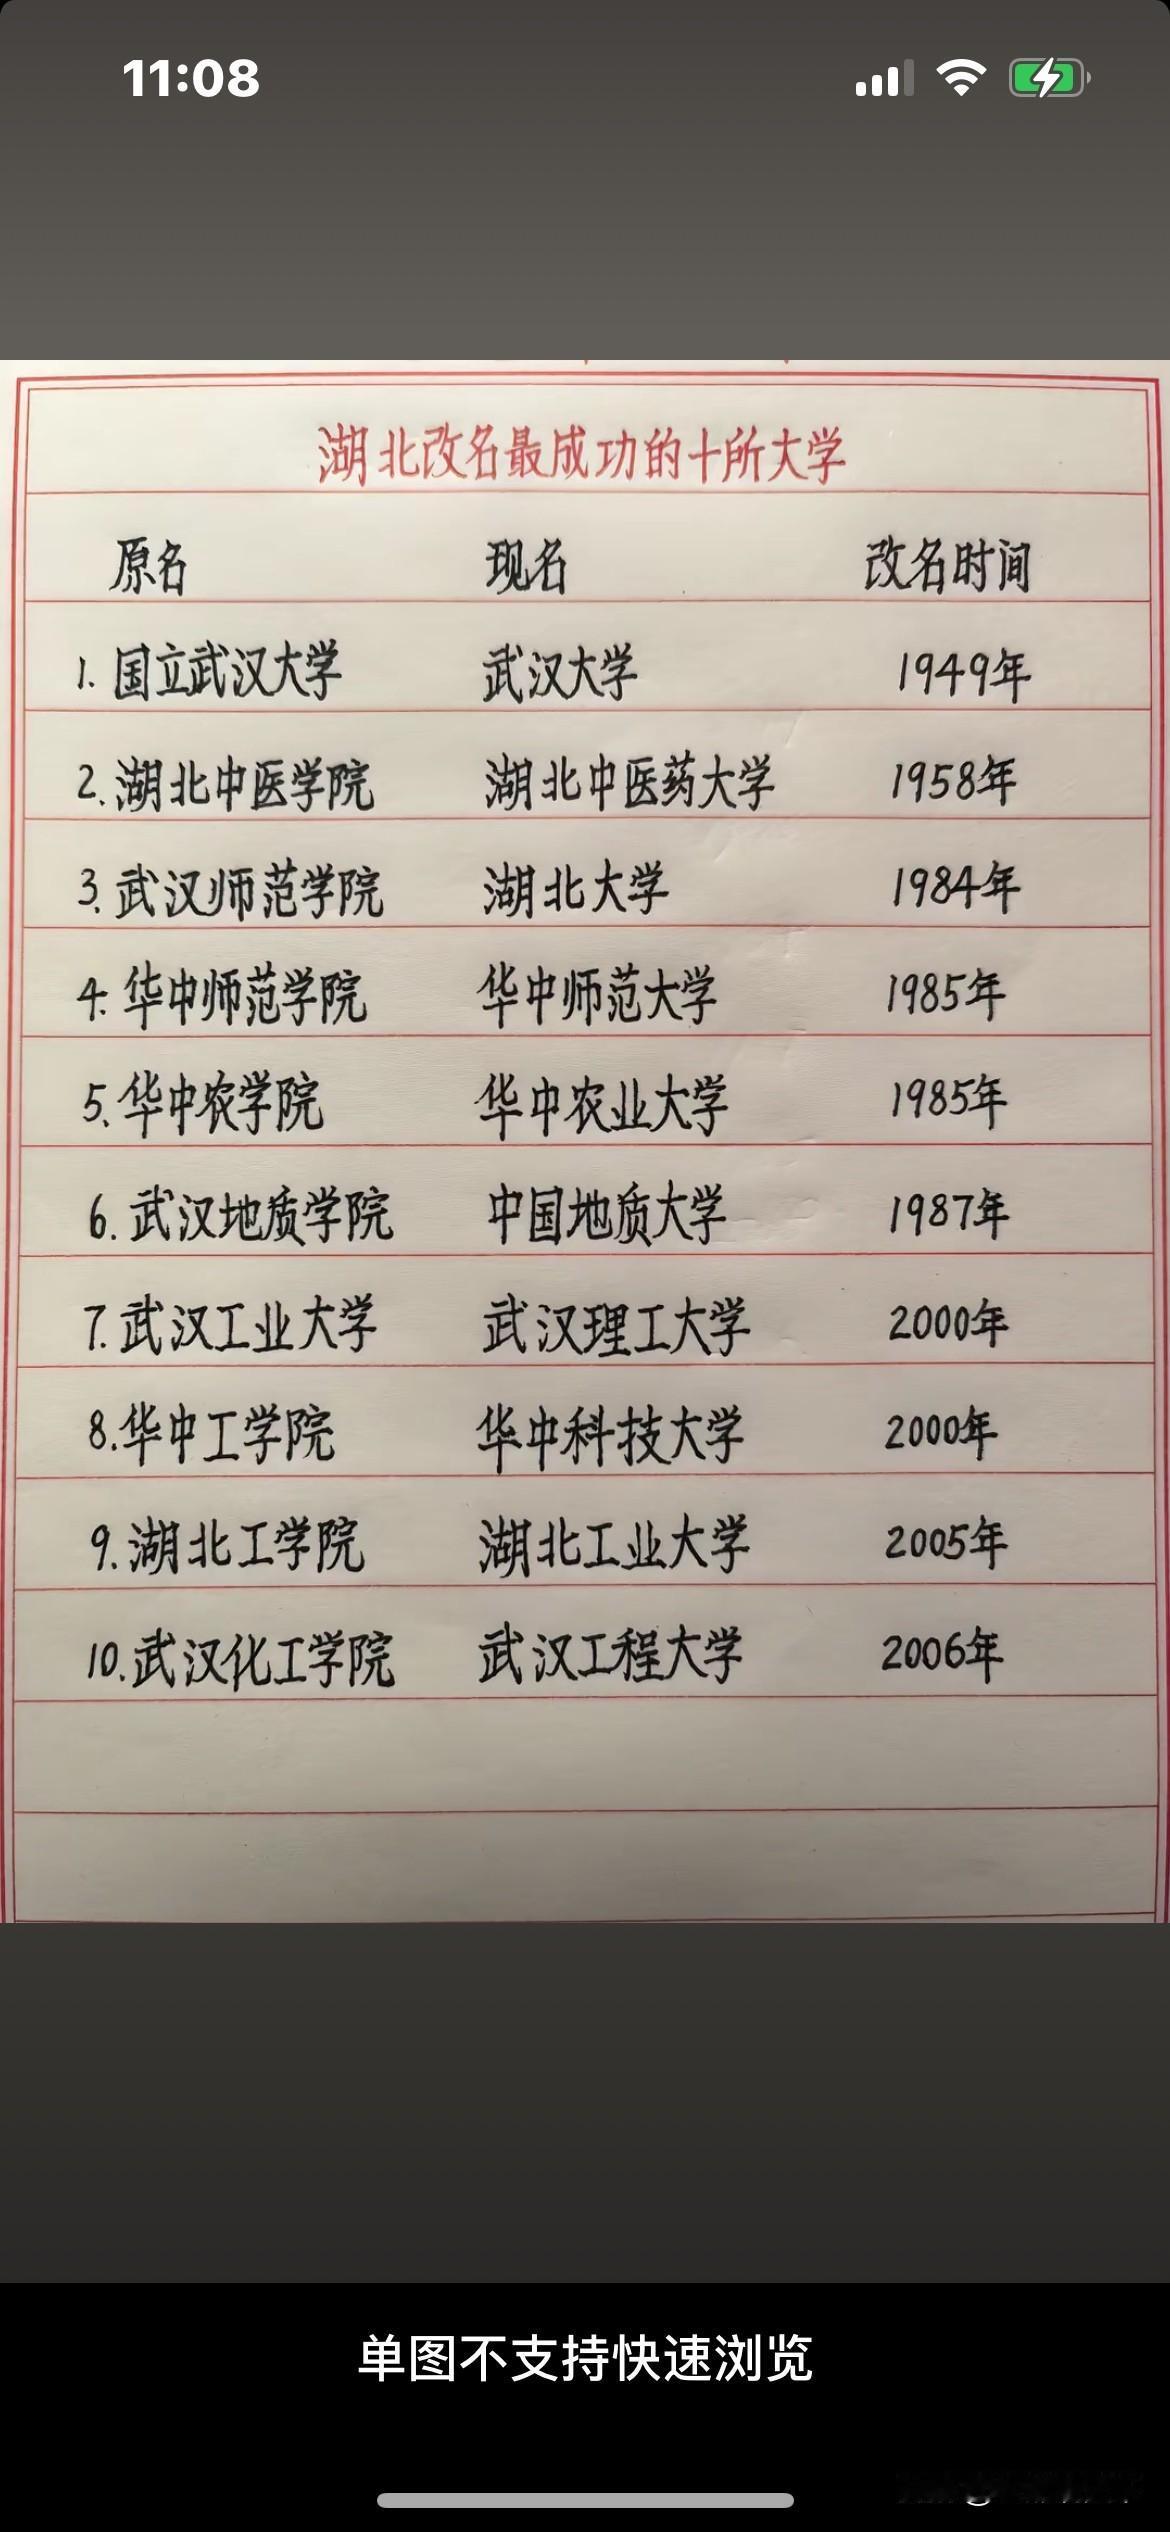 11:08
湖北改名最成功的十所大学
原名 现名 改名时间
1. 国立武汉大学 武汉大学 1949年
2. 湖北中医学院 湖北中医药大学 1958年
3. 武汉师范学院 湖北大学 1984年
4. 华中师范学院 华中师范大学 1985年
5. 华中农学院 华中农业大学 1985年
6. 武汉地质学院 中国地质大学 1987年
7. 武汉工业大学 武汉理工大学 2000年
8. 华中工学院 华中科技大学 2000年
9. 湖北工学院 湖北工业大学 2005年
10. 武汉化工学院 武汉工程大学 2006年
单图不支持快速浏览